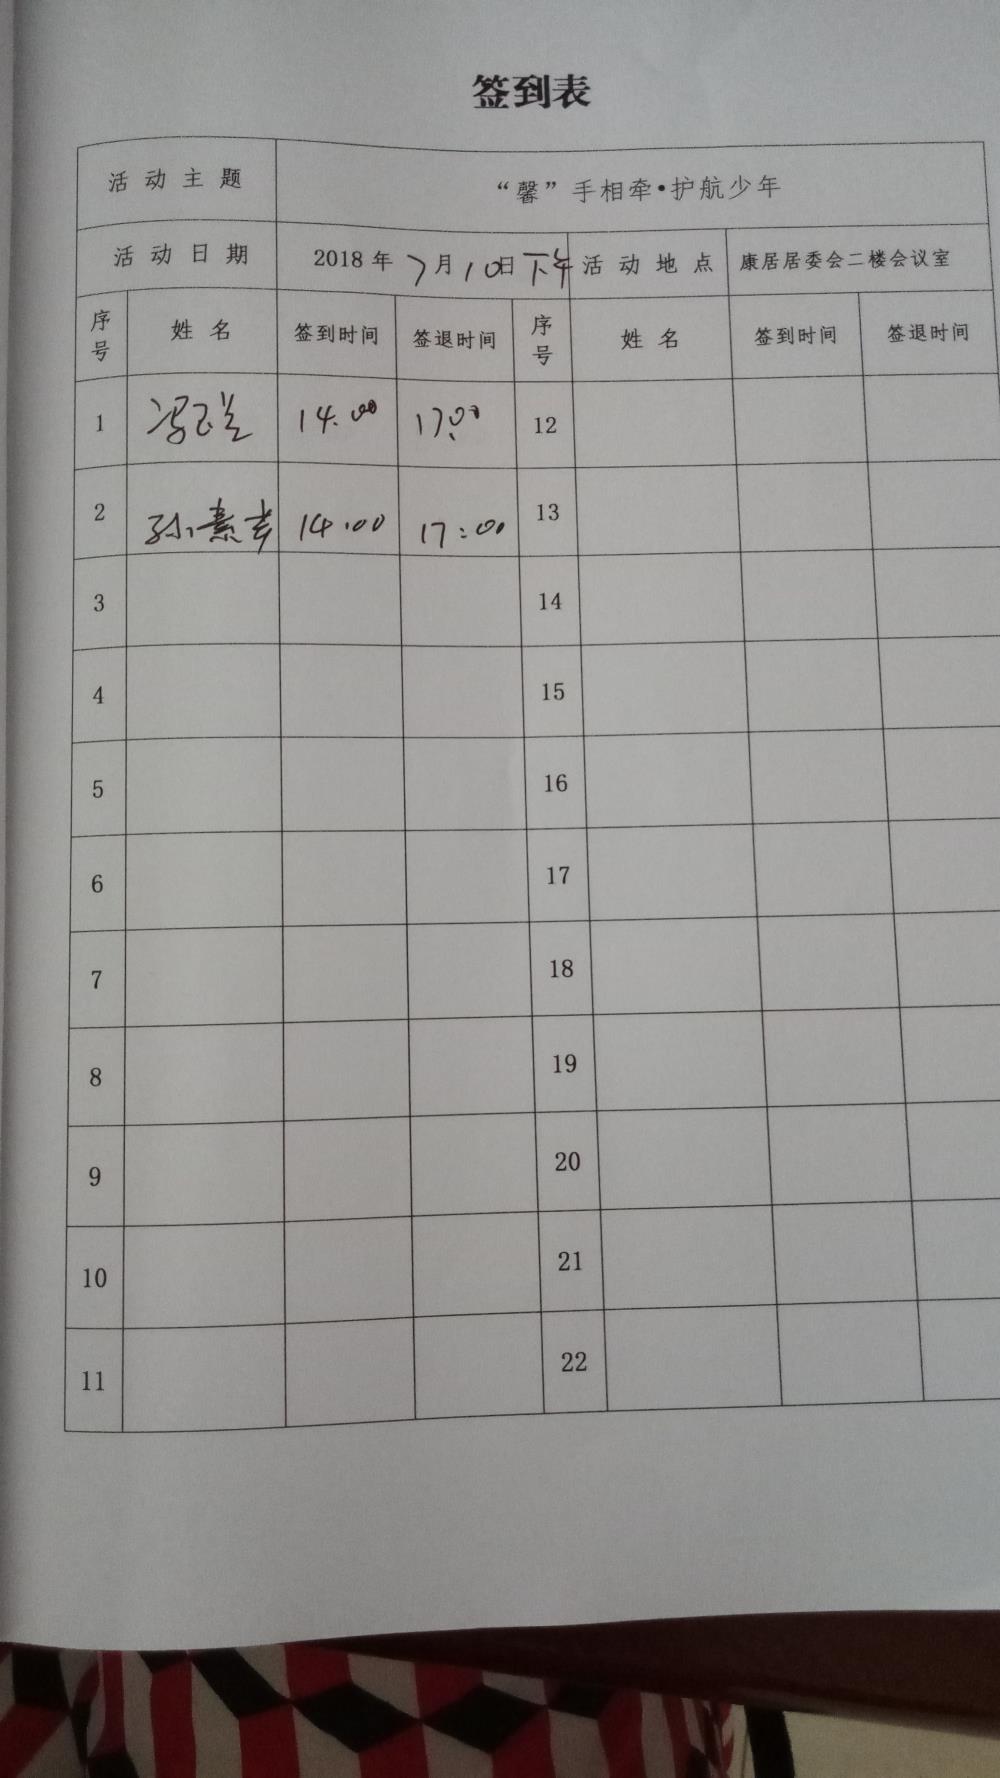 签到表
活动主题 “馨”手相牵•护航少年
活动日期 2018年7月10日下午 活动地点 康居居委会二楼会议室
序号 姓名 签到时间 签退时间 序号 姓名 签到时间 签退时间
1 14:00 17:00 12
2 孙素 14:00 17:00 13
3 14
4 15
5 16
6 17
7 18
8 19
9 20
10 21
11 22